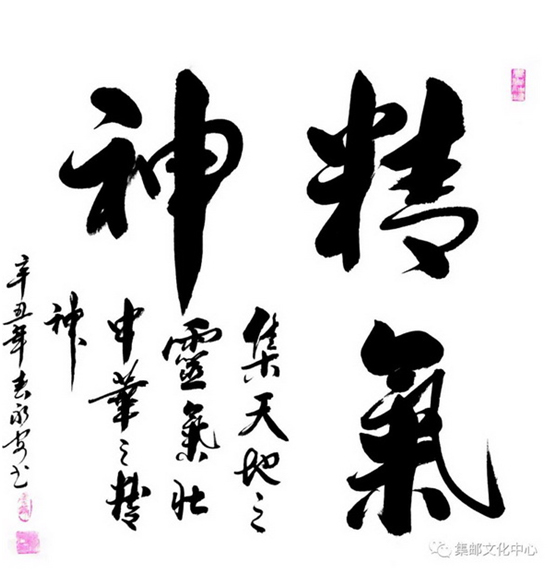 精氣
神
集天地之
靈氣壯
中華之精
神
辛丑年 永安书
集邮文化中心